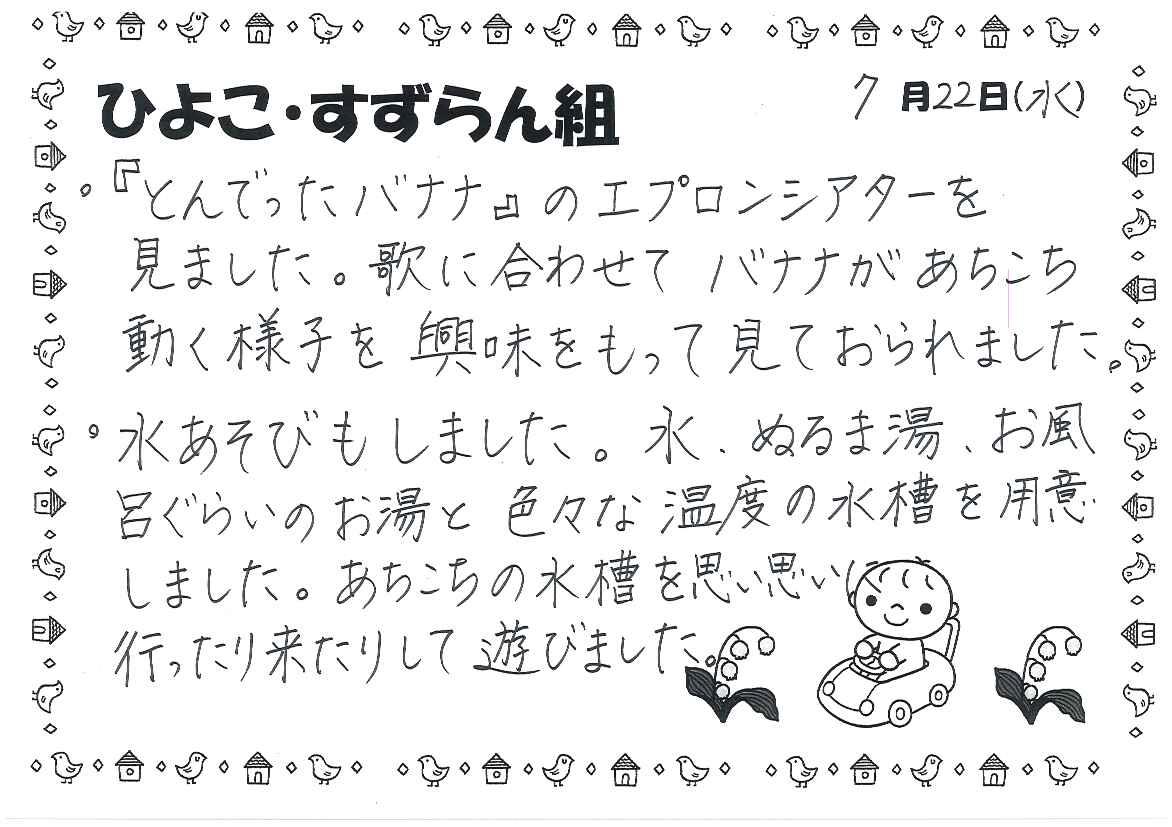 ひよこ・すずらん組
7月22日(水)
。『とんでったバナナ』のエプロンシアターを
見ました。歌に合わせてバナナがあちこち
動く様子を興味をもって見ておられました。
。水あそびもしました。水、ぬるま湯、お風
呂ぐらいのお湯と色々な温度の水槽を用意
しました。あちこちの水槽を思い思い
行ったり来たりして遊びました。